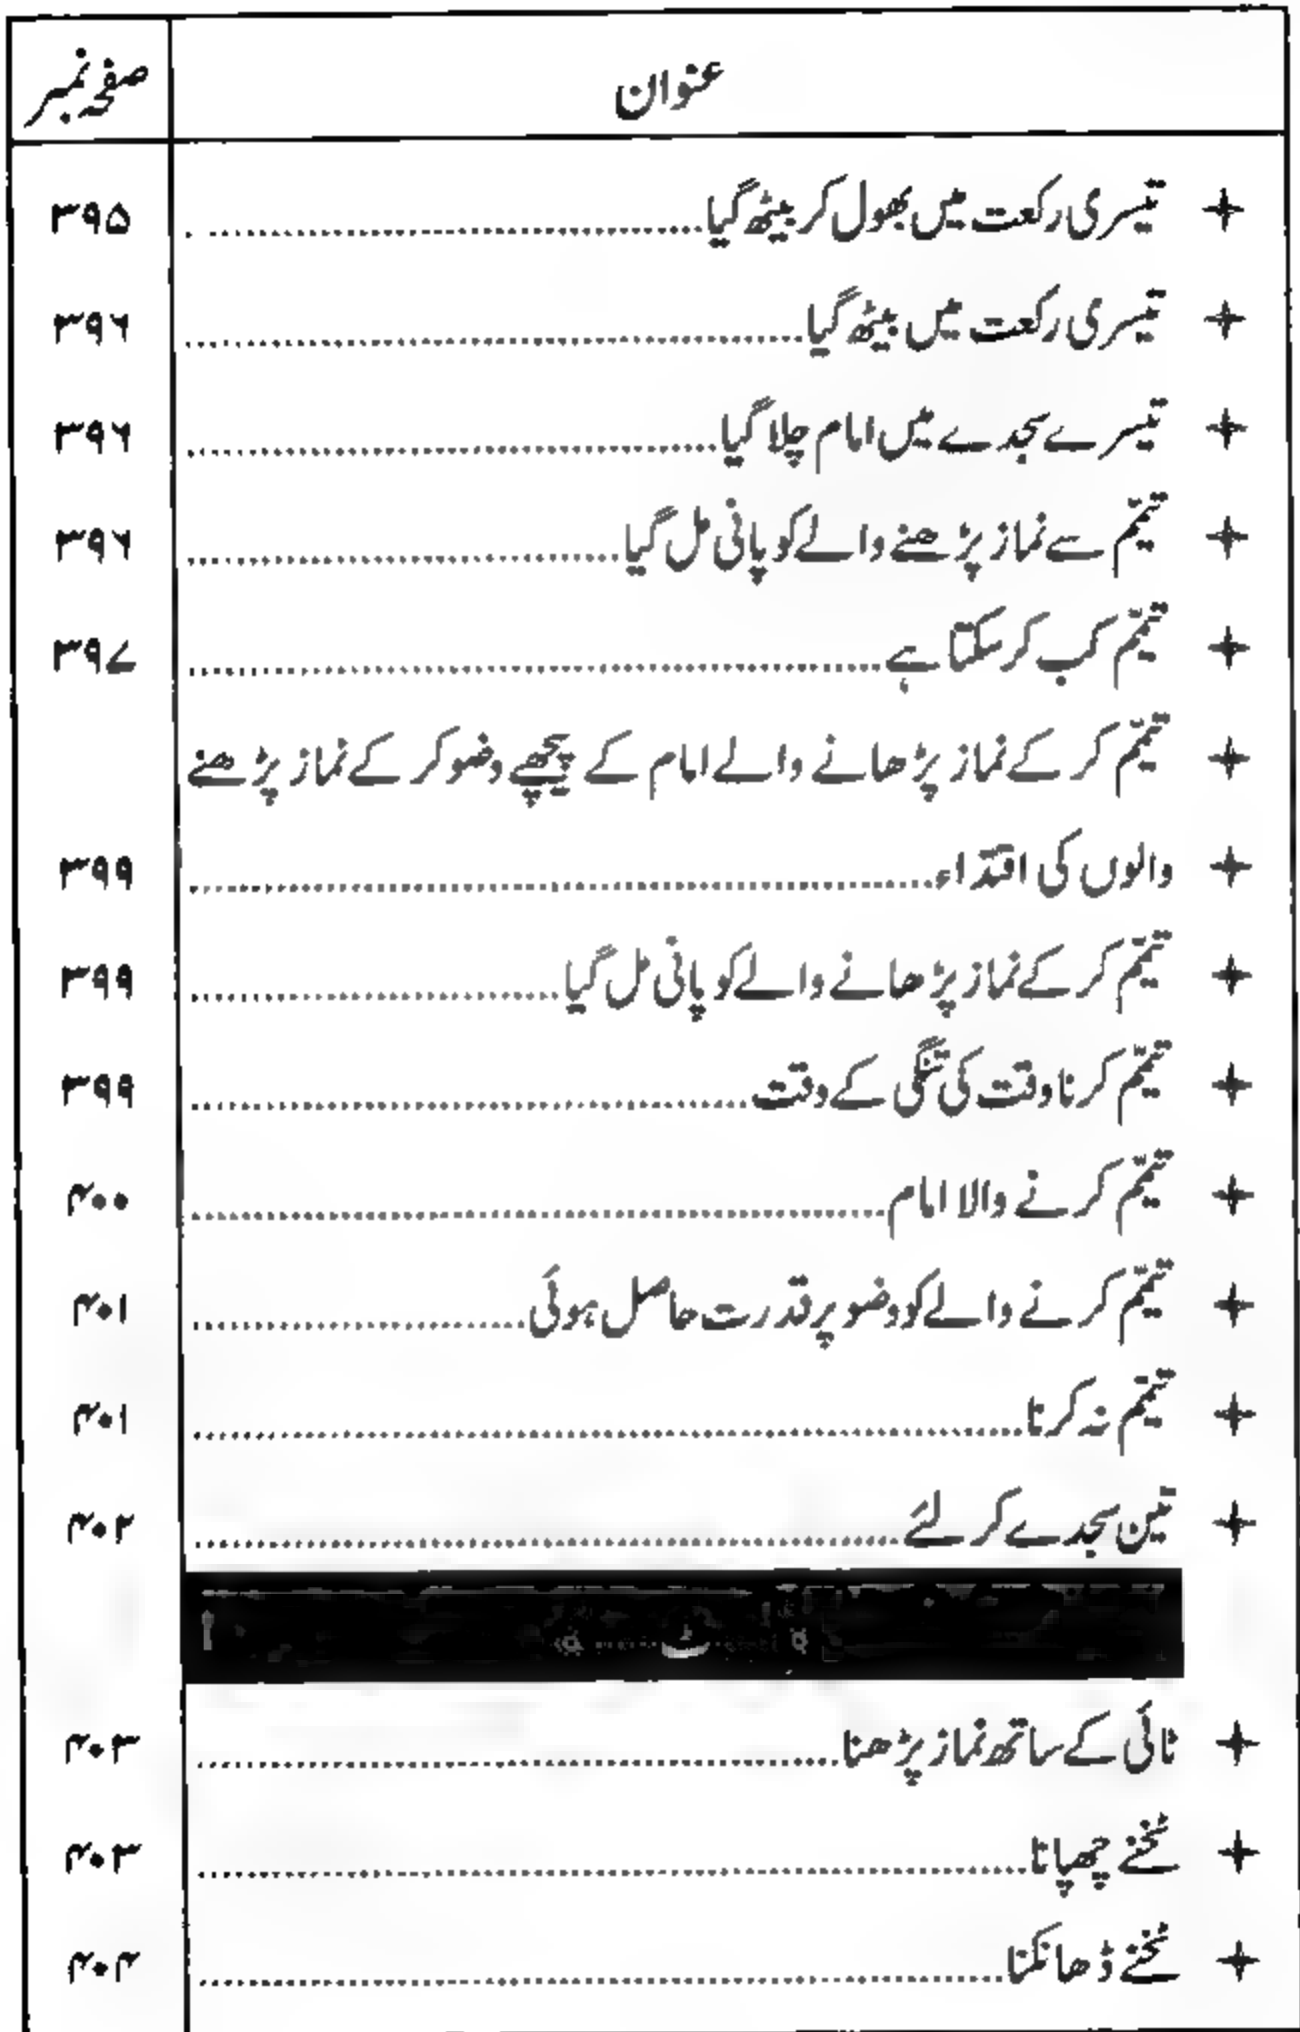 عنوان صفحہ نمبر
تیسری رکعت میں بھول کر بیٹھ گیا ۳۹۵
تیسری رکعت میں بیٹھ گیا ۳۹۶
تیسرے سجدے میں امام چلا گیا ۳۹۶
تیمّم سے نماز پڑھنے والے کو پانی مل گیا ۳۹۶
تیمّم کب کر سکتا ہے ۳۹۷
تیمّم کر کے نماز پڑھانے والے امام کے پیچھے وضو کر کے نماز پڑھنے
والوں کی اقتداء ۳۹۹
تیمّم کر کے نماز پڑھانے والے کو پانی مل گیا ۳۹۹
تیمّم کرنا وقت کی تنگی کے وقت ۳۹۹
تیمّم کرنے والا امام ۴۰۰
تیمّم کرنے والے کو وضو پر قدرت حاصل ہوئی ۴۰۱
تیمّم نہ کرنا ۴۰۱
تین سجدے کر لئے ۴۰۲
ٹائی کے ساتھ نماز پڑھنا ۴۰۳
ٹخنے چھپانا ۴۰۳
ٹخنے ڈھانکنا ۴۰۴